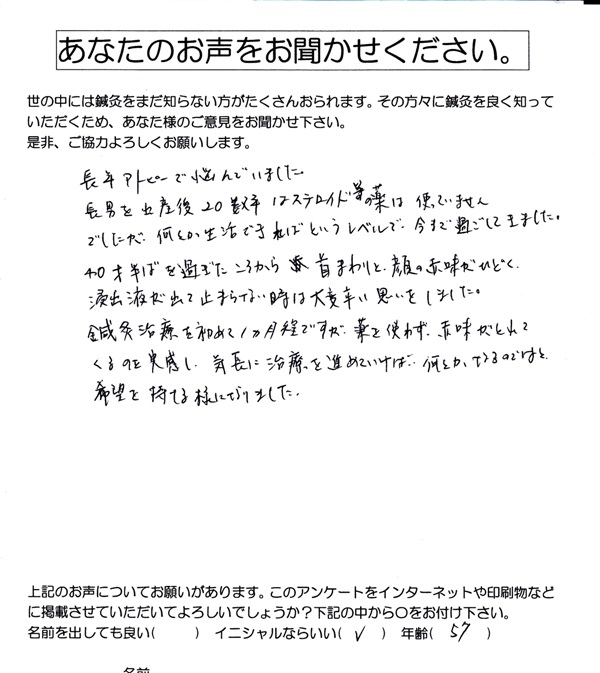 あなたのお声をお聞かせください。
世の中には鍼灸をまだ知らない方がたくさんおられます。その方々に鍼灸を良く知って
いただくため、あなた様のご意見をお聞かせ下さい。
是非、ご協力よろしくお願いします。
長年アトピーで悩んでいました。
長男を出産後20数年はステロイド等の薬は使っていません
でしたが、何とか生活できればというレベルで、今まで過ごして来ました。
40才半ばを過ぎたころから首まわりと、顔の赤味がひどく、
浸出液が出て止まらない時は大変辛い思いをしました。
鍼灸治療を初めて1ヵ月程ですが、薬を使わず、赤味がとれて
くるのを実感し、気長に治療を進めていけば、何とかなるのではと、
希望を持てる様になりました。
上記のお声についてお願いがあります。このアンケートをインターネットや印刷物など
に掲載させていただいてよろしいでしょうか?下記の中から〇をお付け下さい。
名前を出しても良い( ) イニシャルならいい( ✓ ) 年齢( 57 )